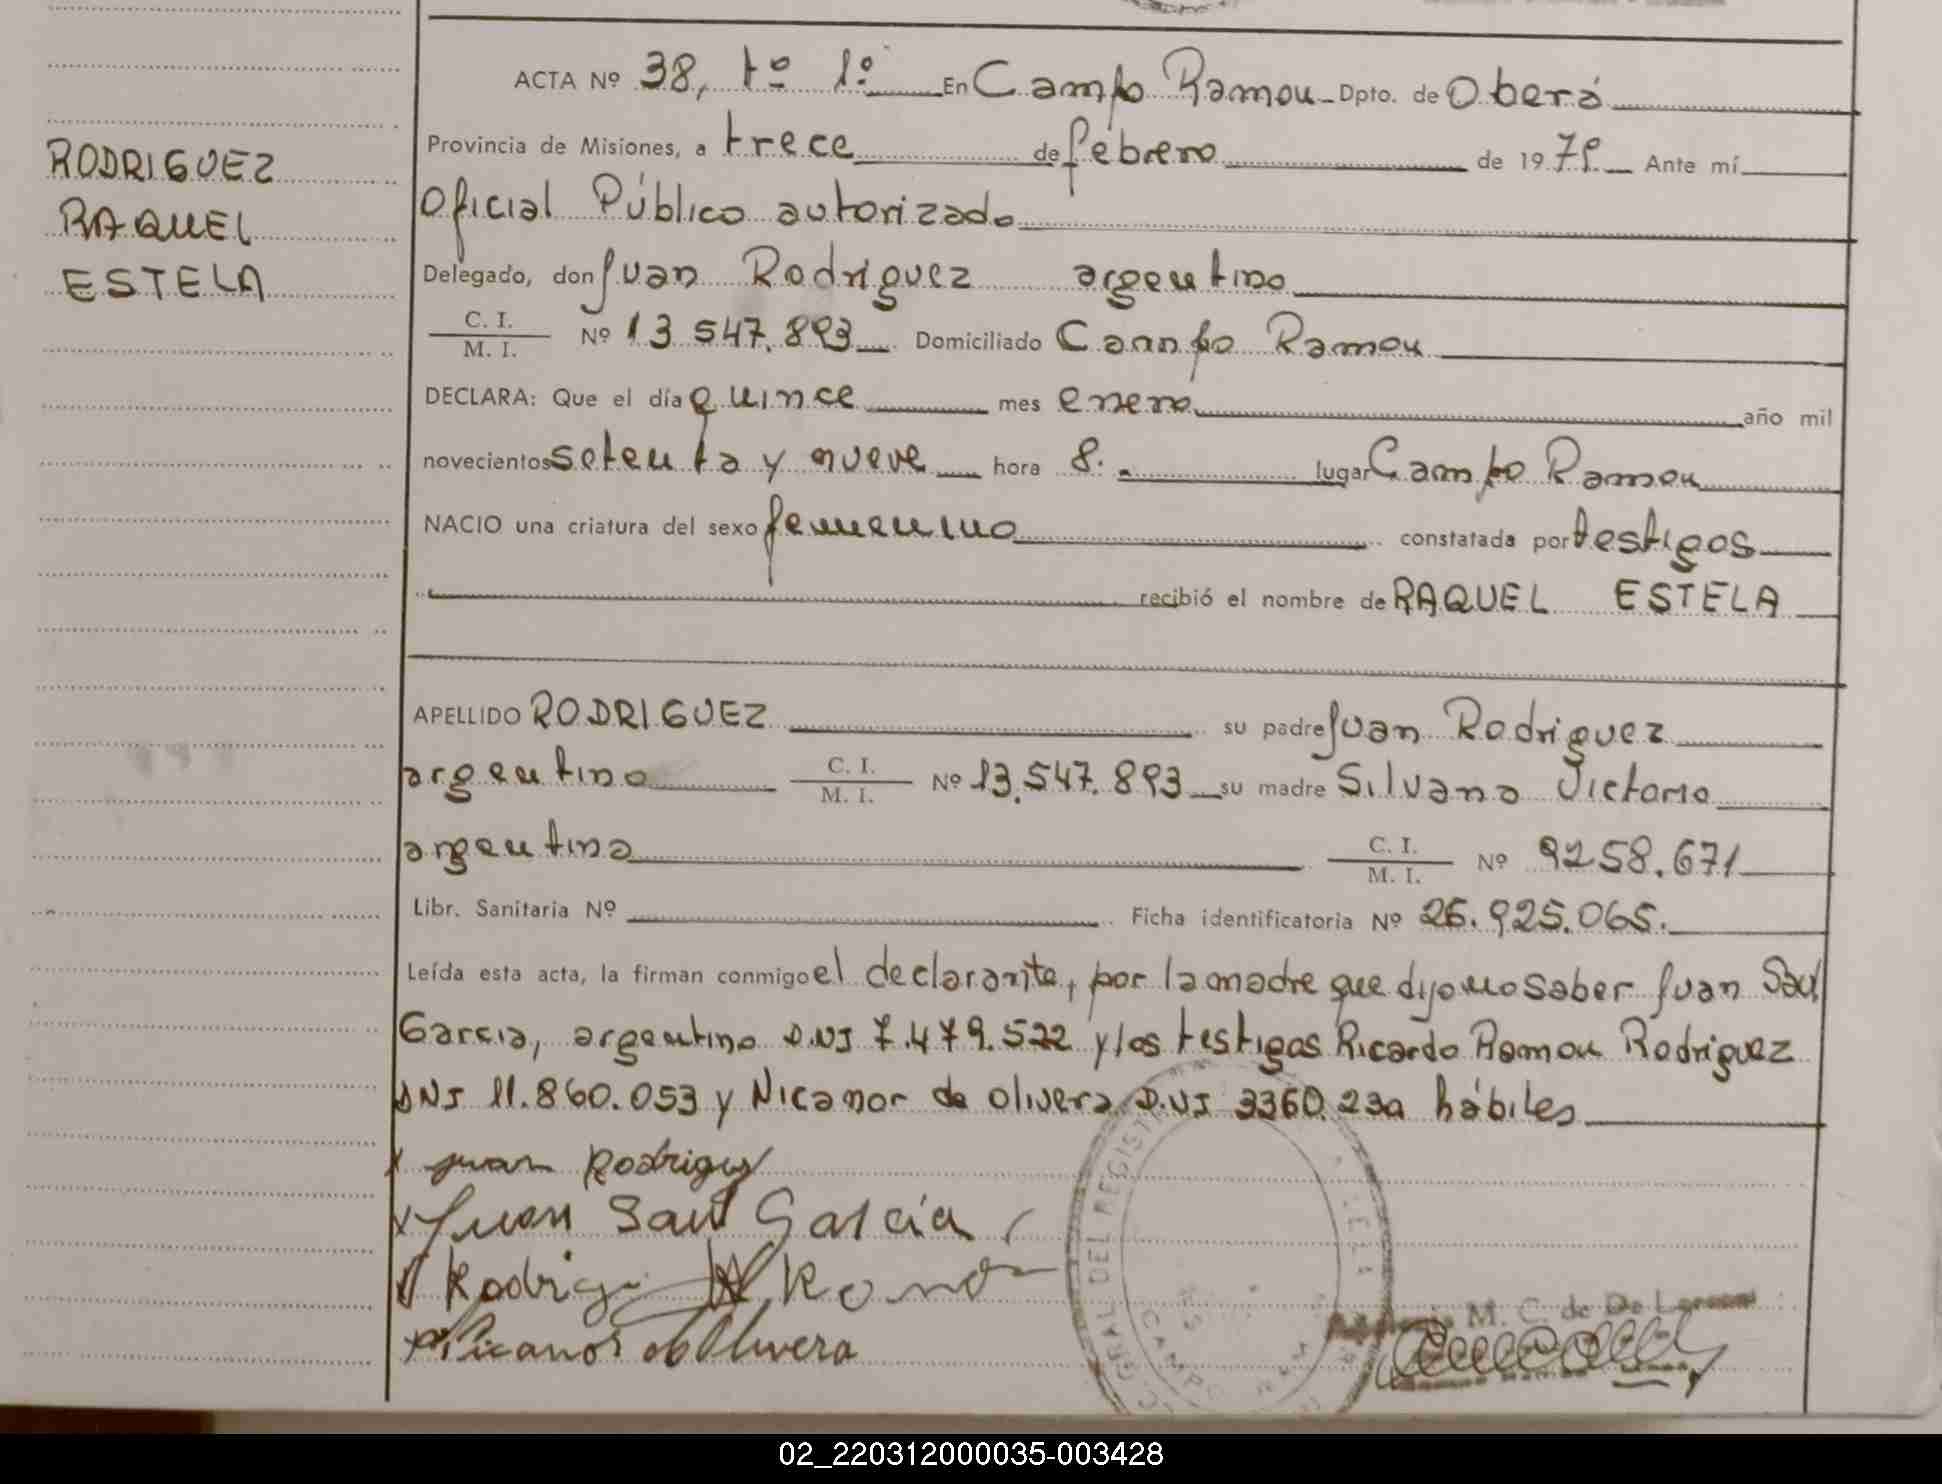 ACTA Nº 38, tº 1º En Campo Ramon - Dpto. de Oberá
Provincia de Misiones, a trece de febrero de 1979 Ante mí
RODRIGUEZ
RAQUEL
ESTELA
Oficial Público autorizado
Delegado, don Juan Rodriguez argentino
C. I.
M. I. Nº 13.547.893 Domiciliado Campo Ramon
DECLARA: Que el día quince mes enero año mil
novecientos setenta y nueve hora 8. lugar Campo Ramon
NACIO una criatura del sexo femenino constatada por testigos
recibió el nombre de RAQUEL ESTELA
APELLIDO RODRIGUEZ su padre Juan Rodriguez
argentino C. I. M. I. Nº 13.547.893 su madre Silvana Victoria
argentina C. I. M. I. Nº 9258.671
Libr. Sanitaria Nº Ficha identificatoria Nº 26.925.065.
Leída esta acta, la firman conmigo el declarante, por la madre que dijo no saber Juan Saul
Garcia, argentino D.N.I 7.479.522 y los testigos Ricardo Ramon Rodriguez
DNI 11.860.053 y Nicanor de Olivera D.N.I 3360.23a hábiles
x Juan Rodriguez
x Juan Saul Garcia
Rodrigu Ramon
x Nicanor de Olivera
GRAL DEL REGISTR
CAMPO RAM
M. C. de De
02_220312000035-003428